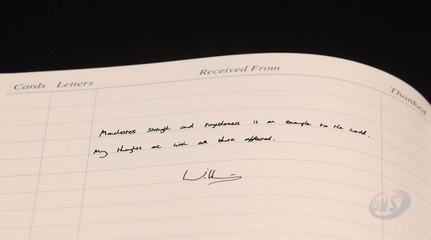 Cards Letters Received From Thanked
Manchesters strength and togetherness is an example to the world.
My thoughts are with all those affected.